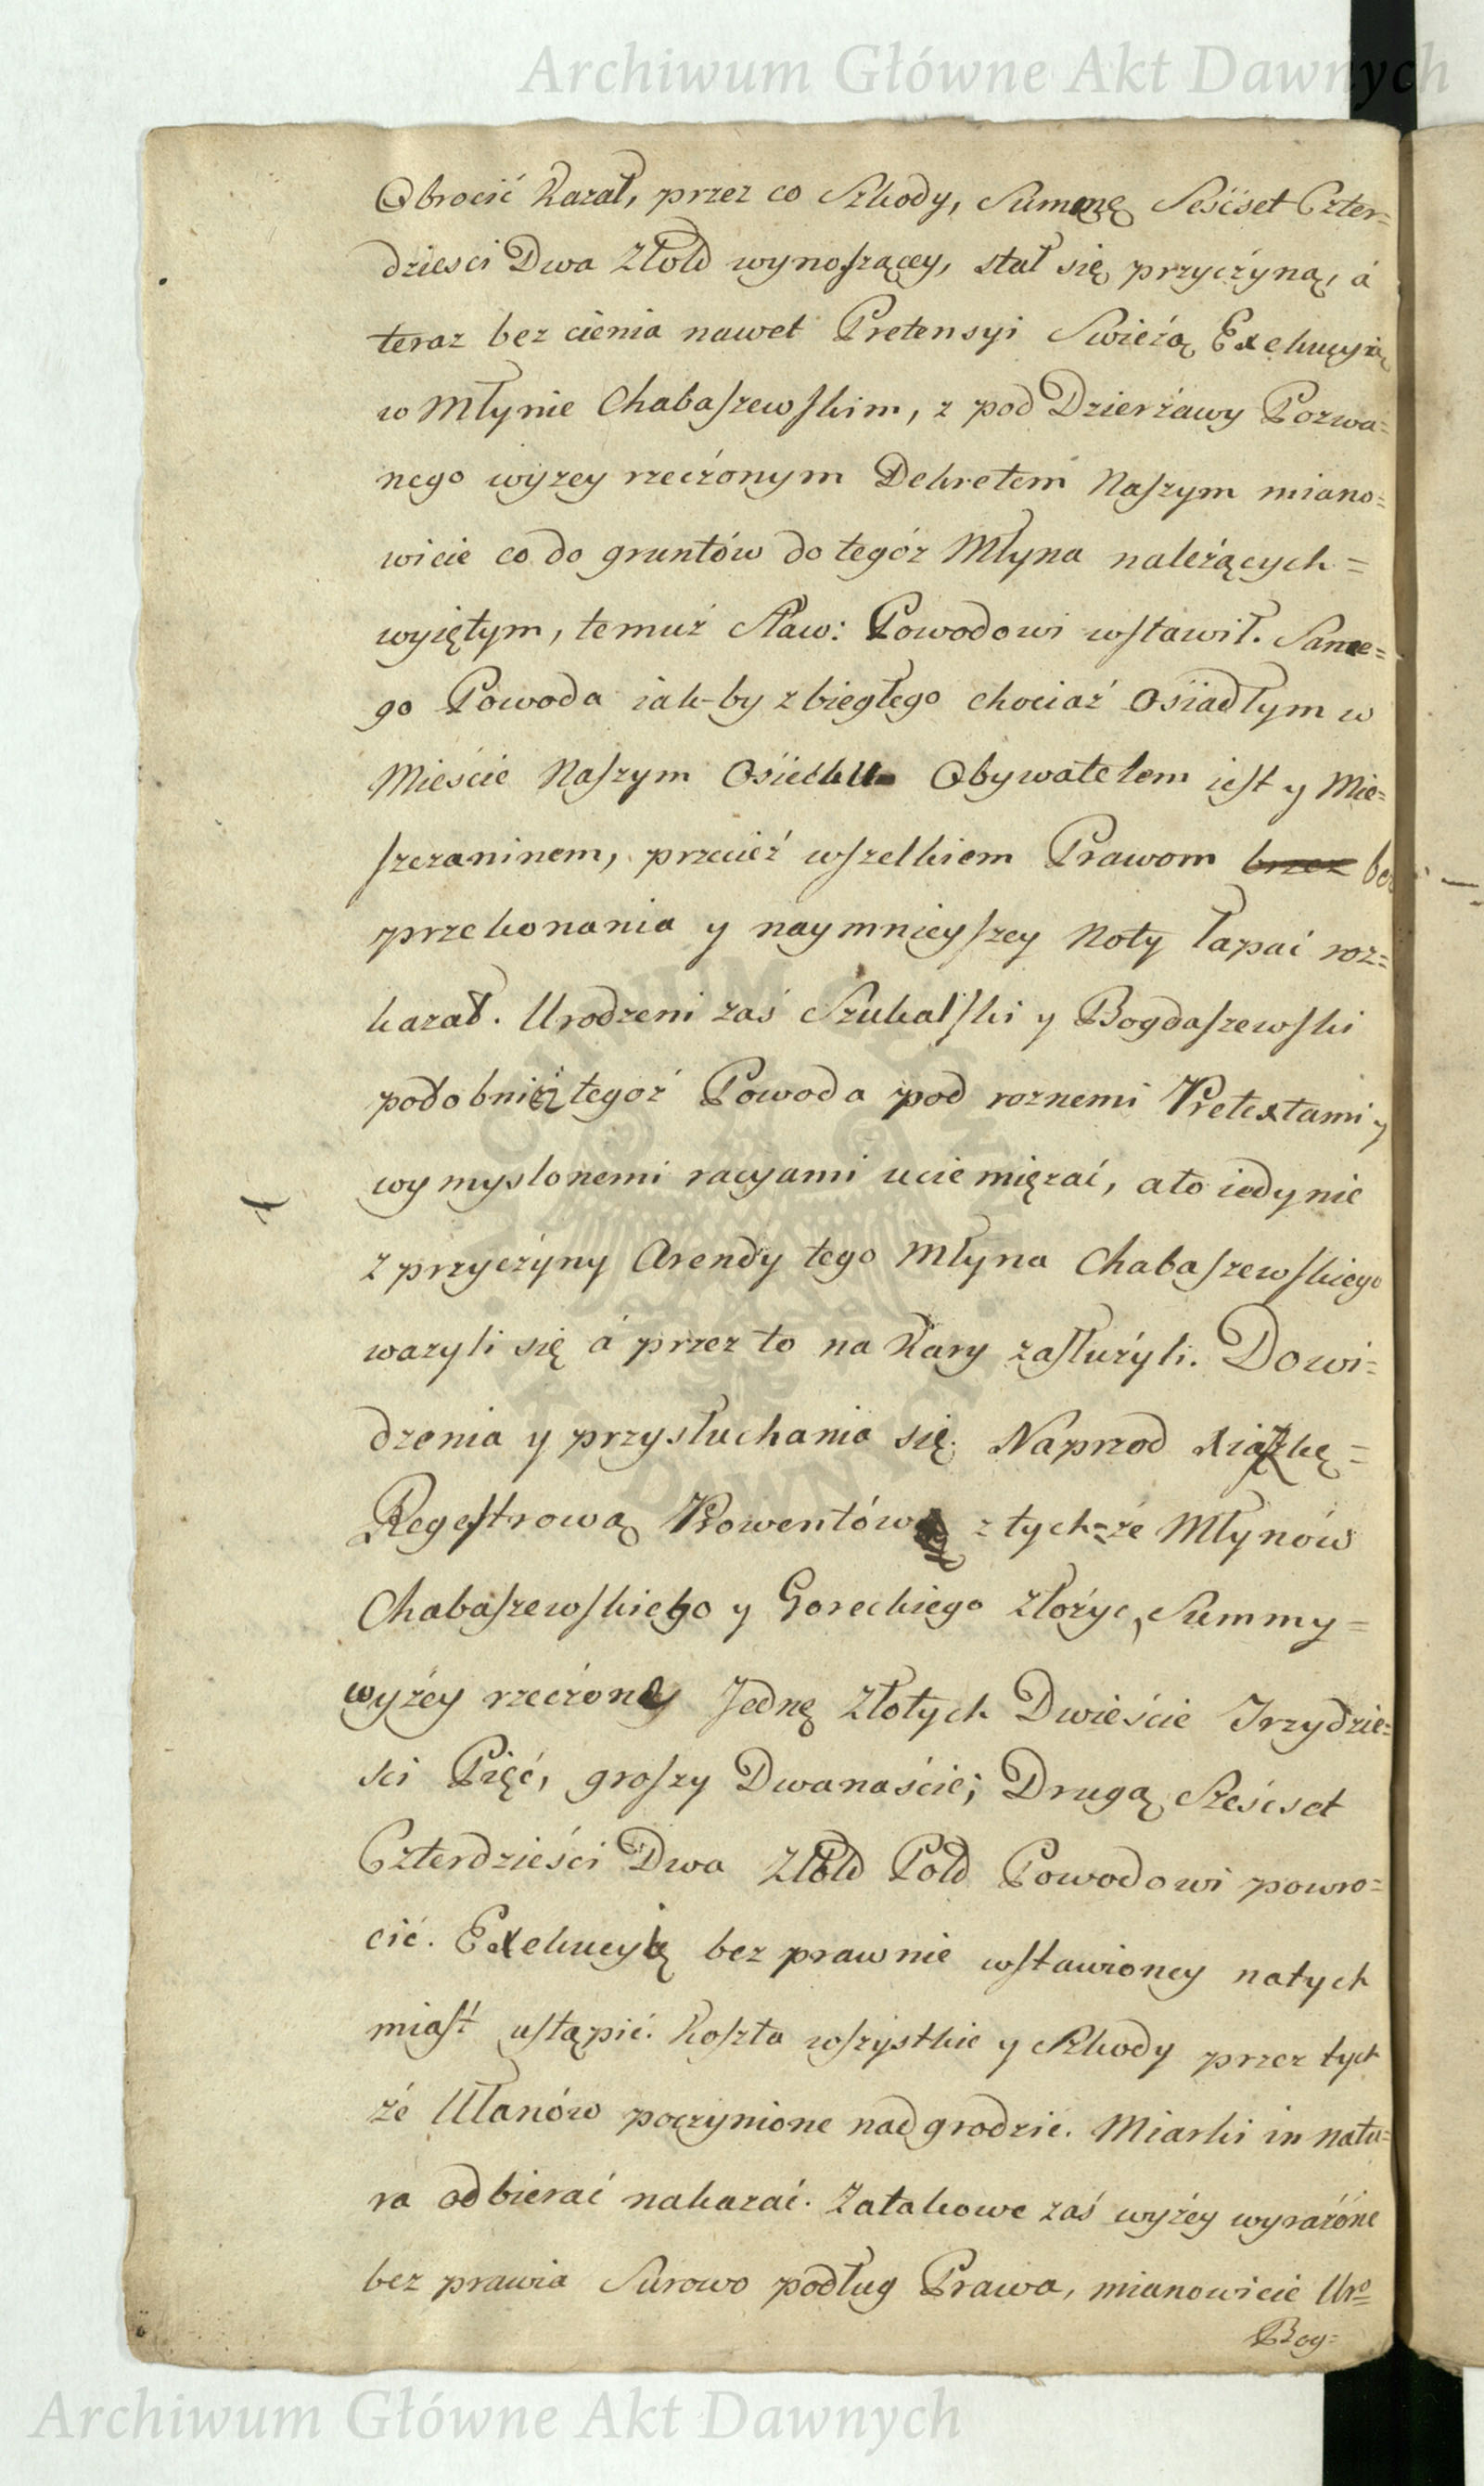 Archiwum Główne Akt Dawnych
Obrocić kazał, przez co Szkody, Summę Seśćset Czter=
dziesci Dwa Złold wynoszącey, stał się przyczyną, á
teraz bez cienia nawet Pretensyi Swieżą Exekucyią
w Młynie Chabaszewskim, z pod Dzierżawy Pozwa=
nego wyżey rzeczonym Dekretem Naszym miano=
wicie co do gruntów do tegóż Młyna należących=
wyiętym, temuż Sław: Powodowi wstawił. Same=
go Powoda iak-by zbiegłego chociaż Osiadłym w
Mieście Naszym Osiecku Obywatelem iest y Mie=
szczaninem, przecież wszelkiem Prawom
przekonania y naymnieyszey Noty łapać roz=
kazał. Urodzeni zaś Szukalski y Bogdaszewski
podobnież tegoż Powoda pod roznemi Pretextami y
wymyslonemi racyami uciemięzać, a to iedynie
z przyczyny Arendy tego Młyna Chabaszewskiego
wazyli się á przez to na Kary zasłużyli. Do wi=
dzenia y przysłuchania się. Naprzod Xiążkę=
Regestrową Prowentów z tych=że Młynów
Chabaszewskiego y Goreckiego złożyc, Summy=
wyżey rzeczoney Jednę Złotych Dwieście Trzydzie=
sci Pięć, groszy Dwanaście; Drugą Sześcset
Czterdzieści Dwa Złold Pold Powodowi powro=
cić. Exekucyię bez prawnie wstawioney natych
miast ustąpić. Koszta wszystkie y Szkody przez tych
że Ułanów poczynione nadgrodzić. Miarki in natu=
ra odbierać nakazać. Zatakowe zaś wyżey wyrażóne
bez prawia Surowo podług Prawa, mianowicie Uro=
Bog=
Archiwum Główne Akt Dawnych